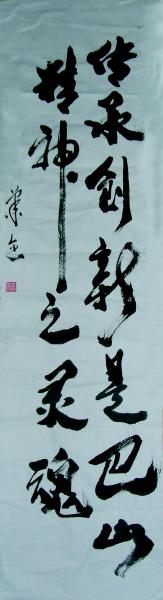 传承创新是巴山
精神之灵魂